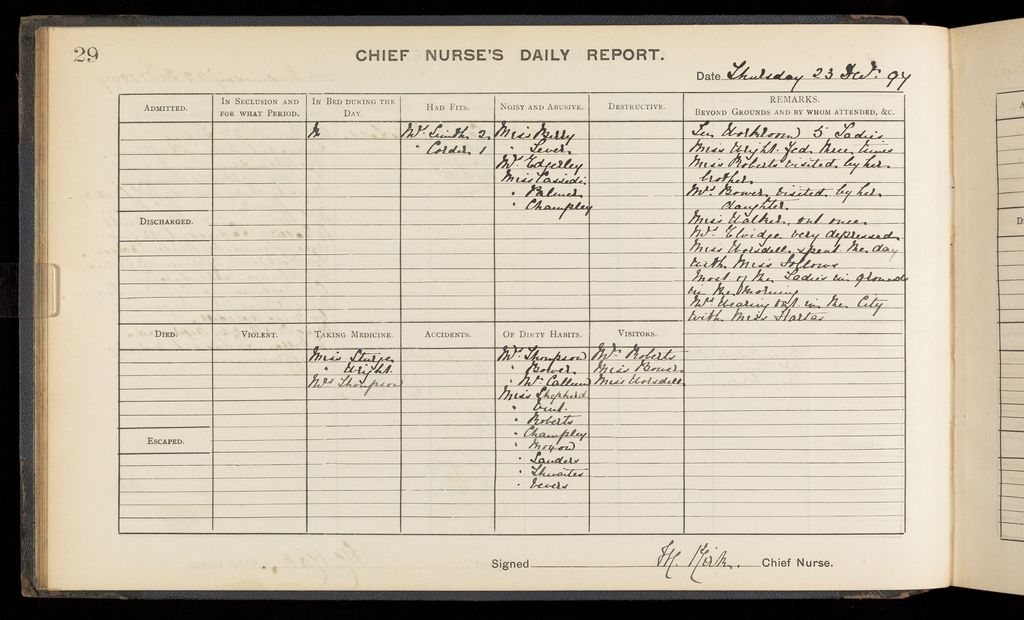 29
CHIEF NURSE'S DAILY REPORT.
Date Thursday 23 Dec. 97
ADMITTED.
IN SECLUSION AND FOR WHAT PERIOD.
IN BED DURING THE DAY.
HAD FITS.
NOISY AND ABUSIVE.
DESTRUCTIVE.
REMARKS.
BEYOND GROUNDS AND BY WHOM ATTENDED, &C.
Mrs Smith 2
" Corder 1
Miss Berry
" Lever
Mrs Edgerley
Miss
" Palmer
" Champley
Workroom 5 Ladies
Miss Wright fed three times
Miss Roberts visited by her
brother
Mrs Bower visited by her
daughter
Miss Walker, out once
Mrs Elvidge very depressed
Miss Worsdell spent the day
with Miss
Most of the Ladies in grounds
in the Morning
Mrs out in the City
with Miss
DISCHARGED.
DIED.
VIOLENT.
TAKING MEDICINE.
ACCIDENTS.
OF DIRTY HABITS.
VISITORS.
Miss Sturge
" Wright
Mrs Thompson
Mrs Thompson
" Bower
" Mc Callum
Miss Shepherd
"
" Roberts
" Champley
" Moxon
" Sanders
" Thwaites
" Vevers
Mr Roberts
Miss Bower
Miss Worsdell
ESCAPED.
Signed H. Kirk. Chief Nurse.